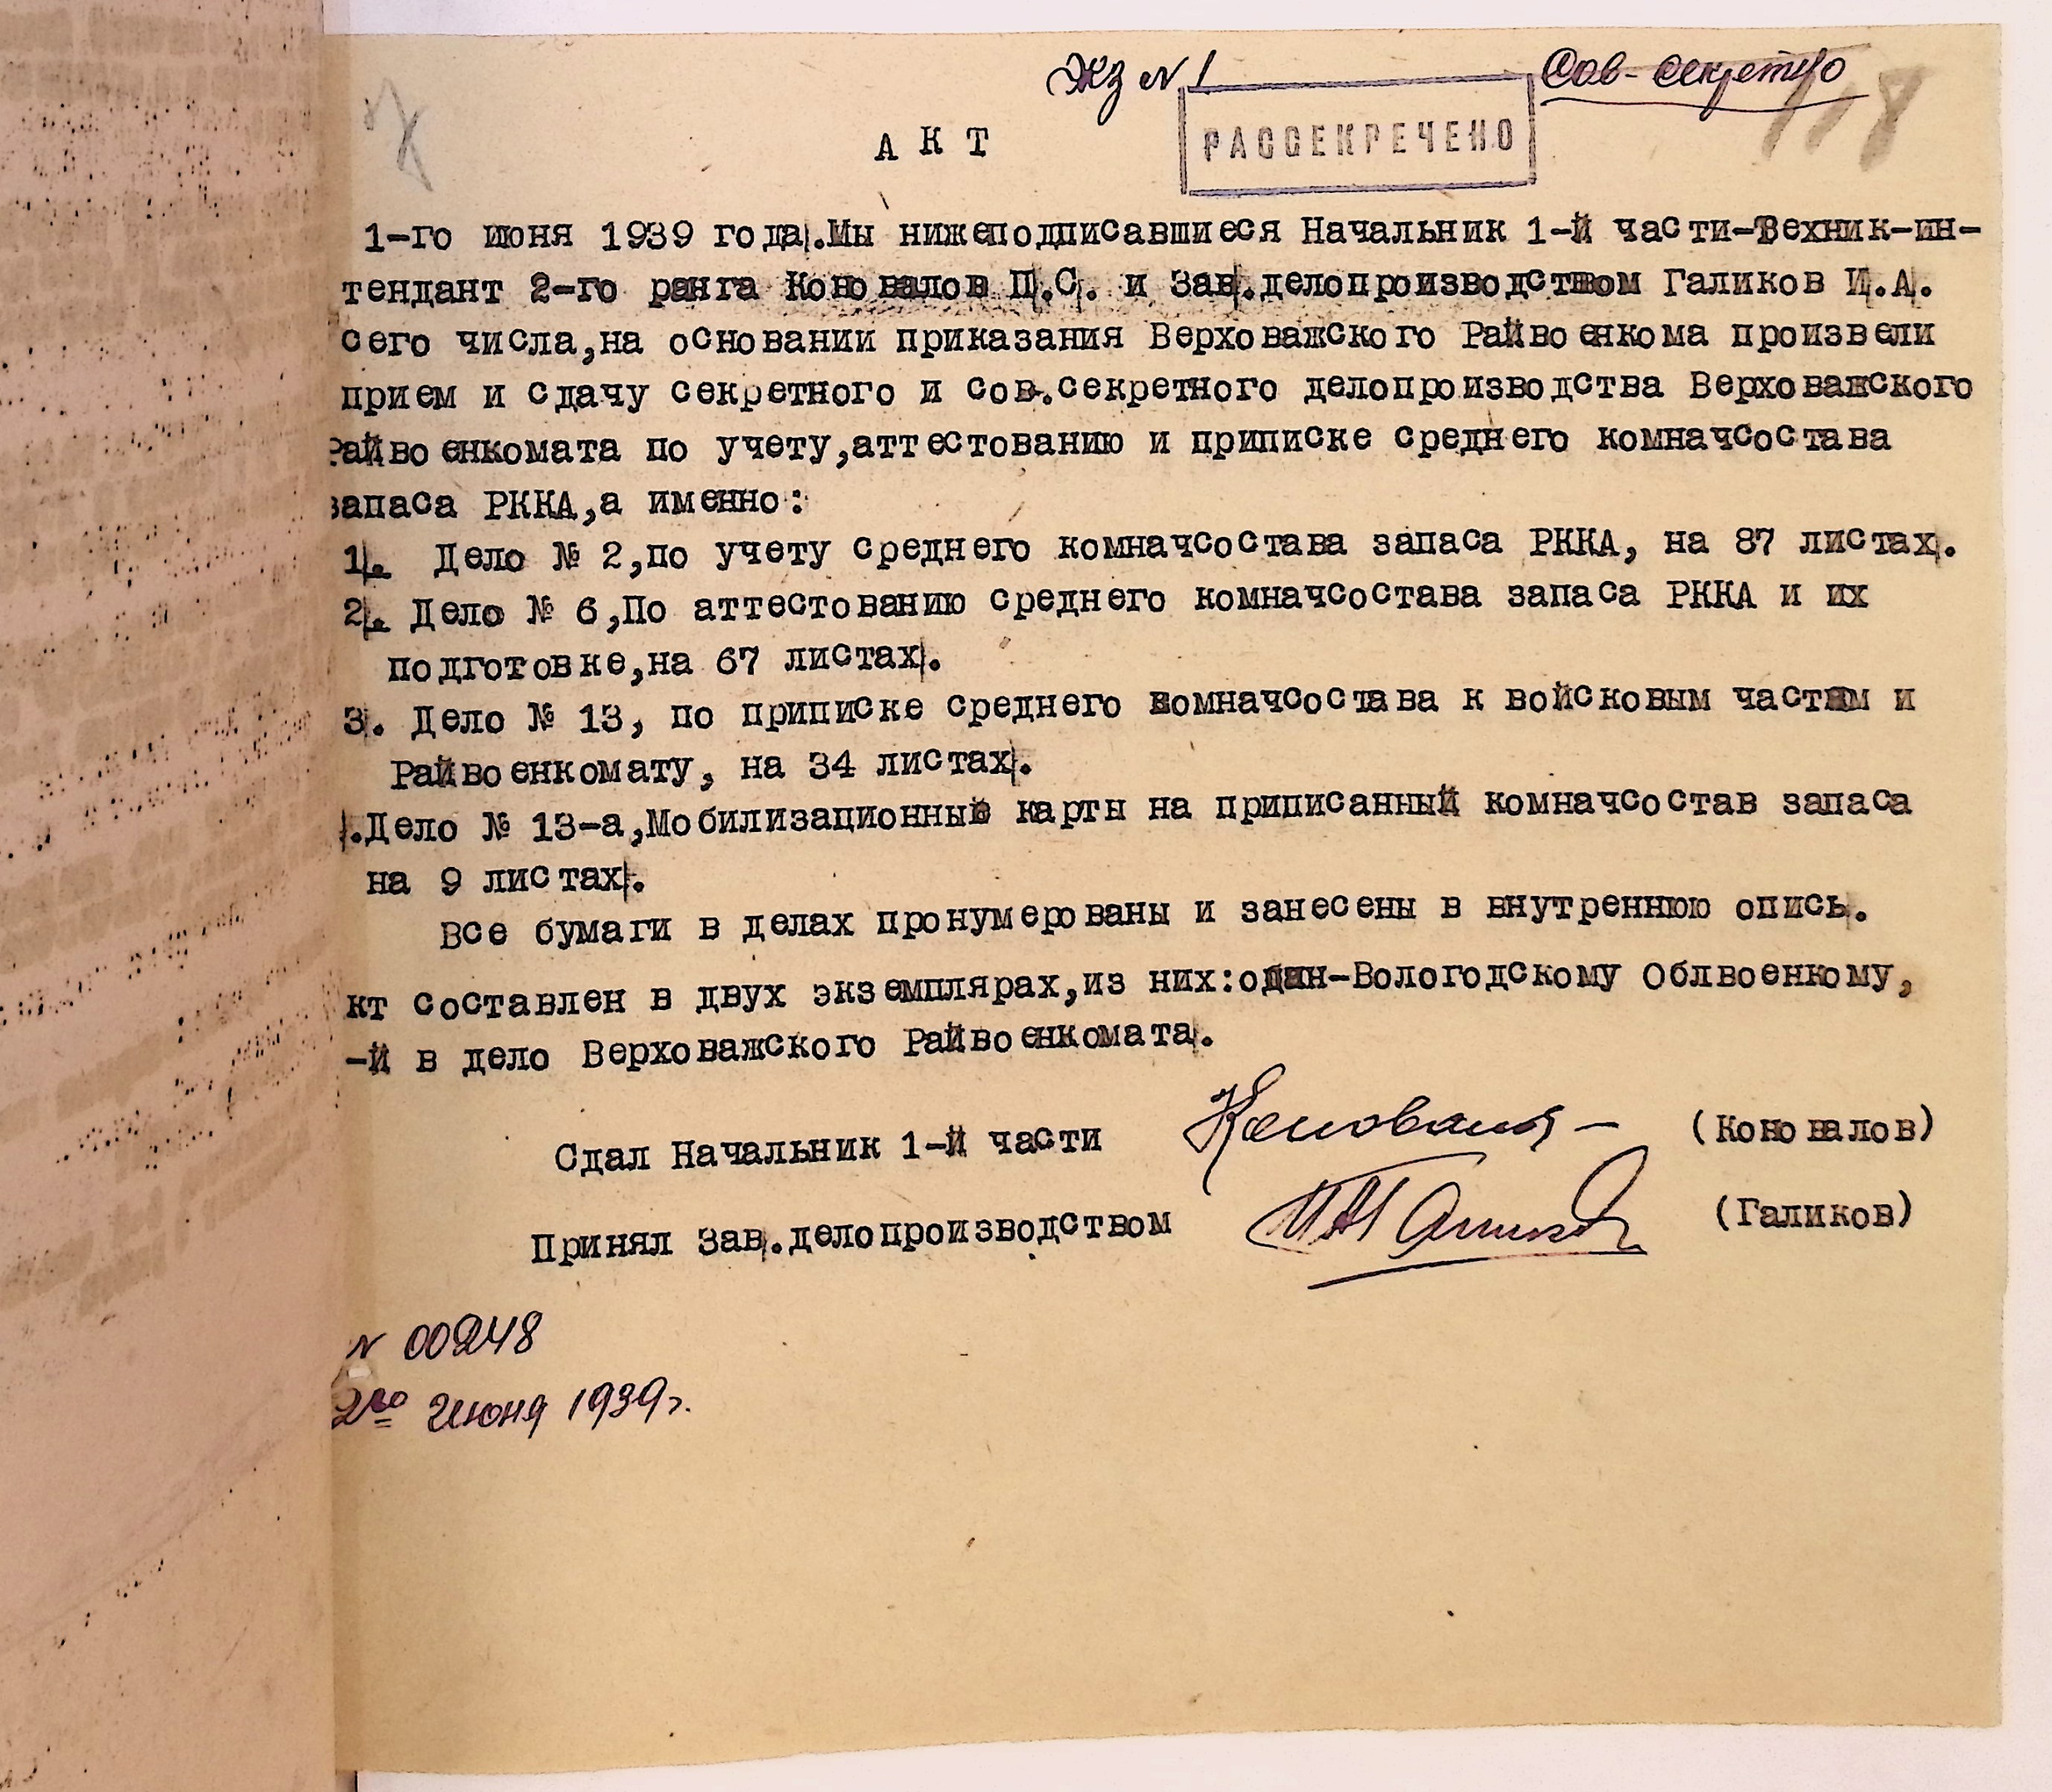 Экз № 1
Сов-секретно
118
РАССЕКРЕЧЕНО
АКТ
1-го июня 1939 года.Мы нижеподписавшиеся Начальник 1-й части-Техник-ин-
тендант 2-го ранга Коновалов П.С. и Зав.делопроизводством Галиков И.А.
сего числа,на основании приказания Верховажского Райвоенкома произвели
прием и сдачу секретного и сов.секретного делопроизводства Верховажского
Райвоенкомата по учету,аттестованию и приписке среднего комначсостава
запаса РККА,а именно:
1. Дело № 2,по учету среднего комначсостава запаса РККА, на 87 листах.
2. Дело № 6,По аттестованию среднего комначсостава запаса РККА и их
подготовке,на 67 листах.
3. Дело № 13, по приписке среднего комначсостава к войсковым частям и
Райвоенкомату, на 34 листах.
.Дело № 13-а,Мобилизационные карты на приписанный комначсостав запаса
на 9 листах.
Все бумаги в делах пронумерованы и занесены в внутреннюю опись.
кт составлен в двух экземплярах,из них:один-Вологодскому Облвоенкому,
-й в дело Верховажского Райвоенкомата.
Сдал Начальник 1-й части Коновалов (Коновалов)
Принял Зав.делопроизводством ИАГаликов (Галиков)
№ 00248
2го июня 1939г.